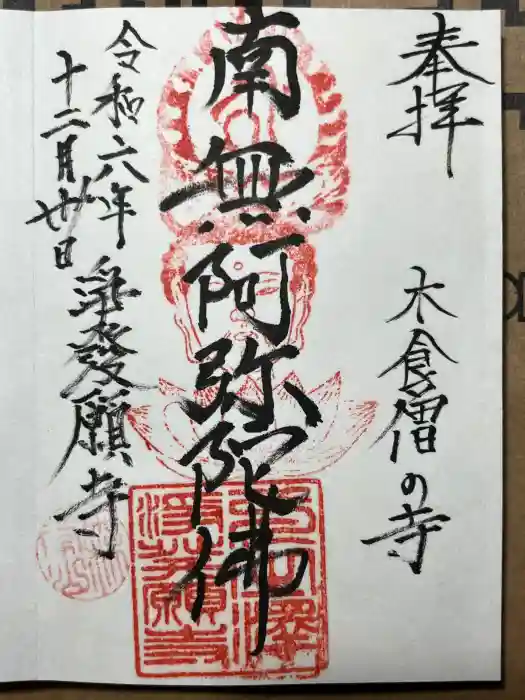 奉拝
木食僧の寺
南無阿弥陀佛
令和六年
十二月廿日
淨發願寺